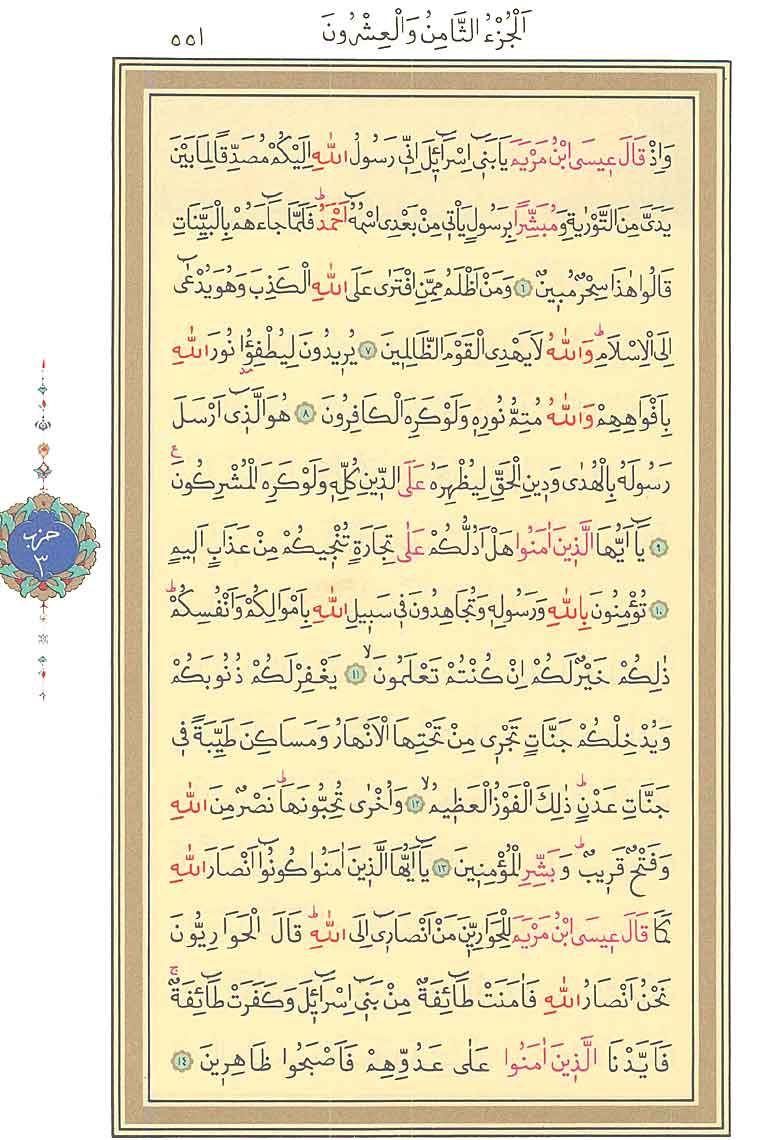 اَلْجُزْءُ الثَّامِنُ وَالْعِشْرُونَ
٥٥١
وَاِذْ قَالَ ع۪يسَى ابْنُ مَرْيَمَ يَا بَن۪ٓي اِسْرَٓائ۪لَ اِنّ۪ي رَسُولُ اللّٰهِ اِلَيْكُمْ مُصَدِّقًا لِمَا بَيْنَ
يَدَيَّ مِنَ التَّوْرٰيةِ وَمُبَشِّرًا بِرَسُولٍ يَأْت۪ي مِنْ بَعْدِي اسْمُهُٓ اَحْمَدُۜ فَلَمَّا جَٓاءَهُمْ بِالْبَيِّنَاتِ
قَالُوا هٰذَا سِحْرٌ مُب۪ينٌ ٦ وَمَنْ اَظْلَمُ مِمَّنِ افْتَرٰى عَلَى اللّٰهِ الْكَذِبَ وَهُوَ يُدْعٰٓى
اِلَى الْاِسْلَامِۜ وَاللّٰهُ لَا يَهْدِي الْقَوْمَ الظَّالِم۪ينَ ٧ يُر۪يدُونَ لِيُطْفِؤُ۫ا نُورَ اللّٰهِ
بِاَفْوَاهِهِمْ وَاللّٰهُ مُتِمُّ نُورِه۪ وَلَوْ كَرِهَ الْكَافِرُونَ ٨ هُوَ الَّذ۪ٓي اَرْسَلَ
رَسُولَهُ بِالْهُدٰى وَد۪ينِ الْحَقِّ لِيُظْهِرَهُ عَلَى الدّ۪ينِ كُلِّه۪ وَلَوْ كَرِهَ الْمُشْرِكُونَ ع
٩ يَٓا اَيُّهَا الَّذ۪ينَ اٰمَنُوا هَلْ اَدُلُّكُمْ عَلٰى تِجَارَةٍ تُنْج۪يكُمْ مِنْ عَذَابٍ اَل۪يمٍ
١٠ تُؤْمِنُونَ بِاللّٰهِ وَرَسُولِه۪ وَتُجَاهِدُونَ ف۪ي سَب۪يلِ اللّٰهِ بِاَمْوَالِكُمْ وَاَنْفُسِكُمْۜ
ذٰلِكُمْ خَيْرٌ لَكُمْ اِنْ كُنْتُمْ تَعْلَمُونَۙ ١١ يَغْفِرْ لَكُمْ ذُنُوبَكُمْ
وَيُدْخِلْكُمْ جَنَّاتٍ تَجْر۪ي مِنْ تَحْتِهَا الْاَنْهَارُ وَمَسَاكِنَ طَيِّبَةً ف۪ي
جَنَّاتِ عَدْنٍۜ ذٰلِكَ الْفَوْزُ الْعَظ۪يمُۙ ١٢ وَاُخْرٰى تُحِبُّونَهَاۜ نَصْرٌ مِنَ اللّٰهِ
وَفَتْحٌ قَر۪يبٌۜ وَبَشِّرِ الْمُؤْمِن۪ينَ ١٣ يَٓا اَيُّهَا الَّذ۪ينَ اٰمَنُوا كُونُٓوا اَنْصَارَ اللّٰهِ
كَمَا قَالَ ع۪يسَى ابْنُ مَرْيَمَ لِلْحَوَارِيّ۪نَ مَنْ اَنْصَار۪ٓي اِلَى اللّٰهِۜ قَالَ الْحَوَارِيُّونَ
نَحْنُ اَنْصَارُ اللّٰهِ فَاٰمَنَتْ طَٓائِفَةٌ مِنْ بَن۪ٓي اِسْرَٓائ۪لَ وَكَفَرَتْ طَٓائِفَةٌۚ
فَاَيَّدْنَا الَّذ۪ينَ اٰمَنُوا عَلٰى عَدُوِّهِمْ فَاَصْبَحُوا ظَاهِر۪ينَ ١٤
حزب
٣